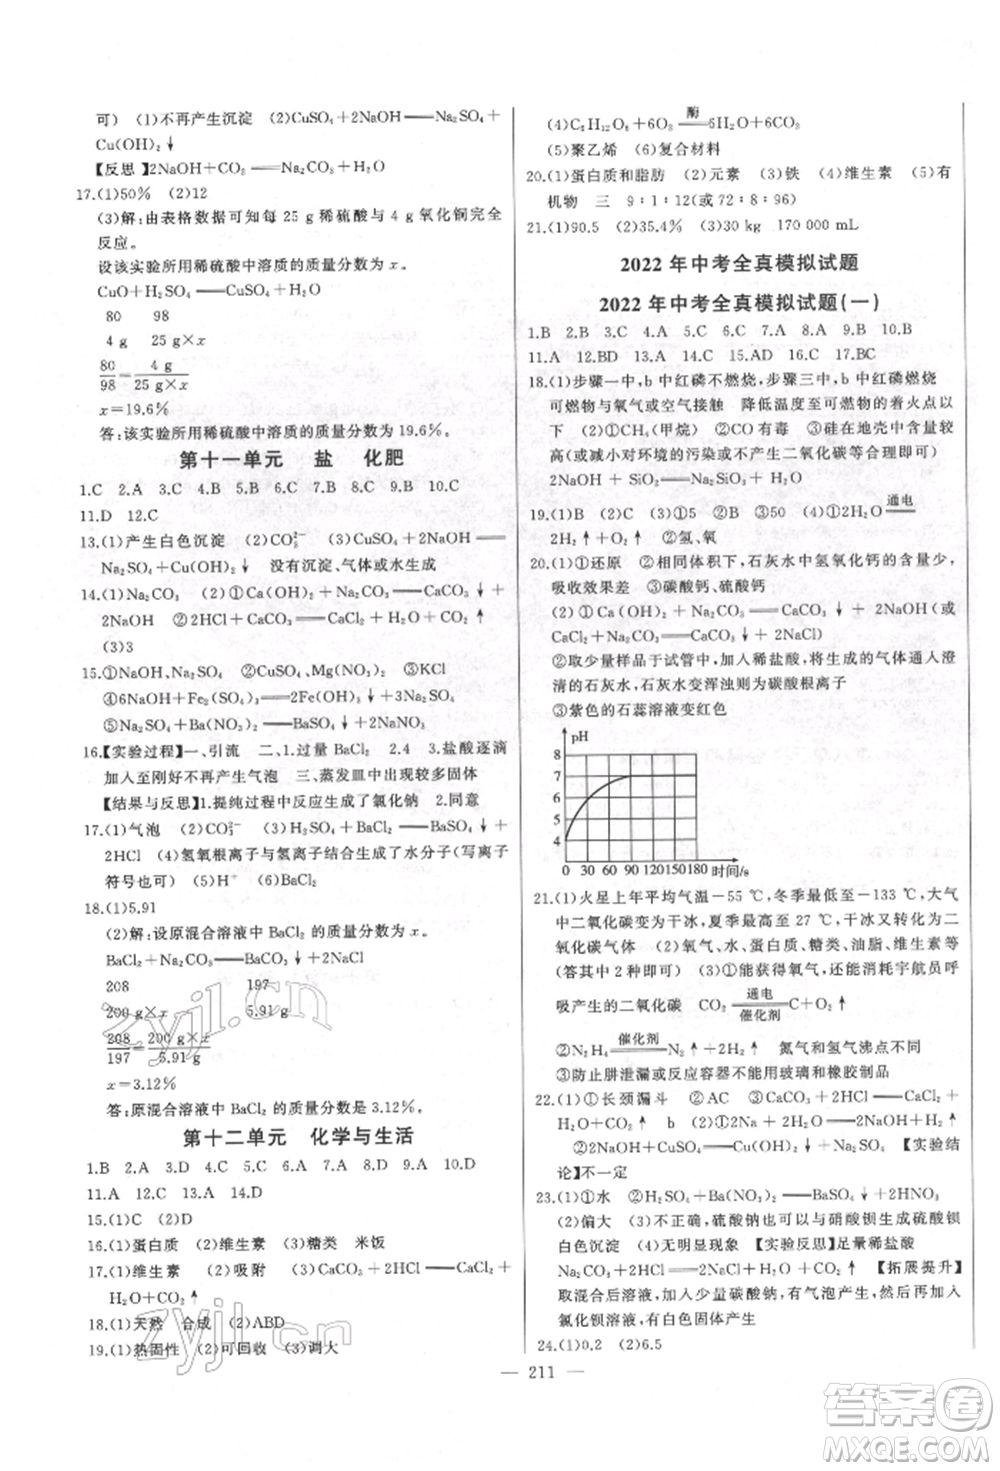 可) (1)不再产生沉淀 (2)CuSO₄+2NaOH══Na₂SO₄+
Cu(OH)₂↓
【反思】2NaOH+CO₂══Na₂CO₃+H₂O
17.(1)50% (2)12
(3)解:由表格数据可知每 25 g稀硫酸与 4 g 氧化铜完全
反应。
设该实验所用稀硫酸中溶质的质量分数为 x。
CuO+H₂SO₄══CuSO₄+H₂O
80 98
4 g 25 g×x
80/98=4 g/(25 g×x)
x=19.6%
答:该实验所用稀硫酸中溶质的质量分数为 19.6%。
第十一单元 盐 化肥
1.C 2.A 3.C 4.B 5.B 6.B 7.D 8.B 9.B 10.C
11.D 12.C
13.(1)产生白色沉淀 (2)CO₃²⁻ (3)CuSO₄+2NaOH══
Na₂SO₄+Cu(OH)₂↓ 没有沉淀、气体或水生成
14.(1)Na₂CO₃ (2)①Ca(OH)₂+Na₂CO₃══CaCO₃↓+
2NaOH ②2HCl+CaCO₃══CaCl₂+H₂O+CO₂↑
(3)3
15.①NaOH、Na₂SO₄ ②CuSO₄、Mg(NO₃)₂ ③KCl
④6NaOH+Fe₂(SO₄)₃══2Fe(OH)₃↓+3Na₂SO₄
⑤Na₂SO₄+Ba(NO₃)₂══BaSO₄↓+2NaNO₃
16.【实验过程】一、引流 二、1.过量 BaCl₂ 2.4 3.盐酸逐滴
加入至刚好不再产生气泡 三、蒸发皿中出现较多固体
【结果与反思】1.提纯过程中反应生成了氯化钠 2.同意
17.(1)气泡 (2)CO₃²⁻ (3)H₂SO₄+BaCl₂══BaSO₄↓+
2HCl (4)氢氧根离子与氢离子结合生成了水分子(写离子
符号也可) (5)H⁺ (6)BaCl₂
18.(1)5.91
(2)解:设原混合溶液中 BaCl₂ 的质量分数为 x。
BaCl₂+Na₂CO₃══BaCO₃↓+2NaCl
208 197
200 g×x 5.91 g
208/197=200 g×x/5.91 g
x=3.12%
答:原混合溶液中 BaCl₂ 的质量分数是 3.12%。
第十二单元 化学与生活
1.B 2.A 3.D 4.C 5.C 6.A 7.B 8.A 9.D 10.D
11.A 12.C 13.D 14.A
15.(1)C (2)D
16.(1)蛋白质 (2)维生素 (3)糖类 米饭
17.(1)维生素 (2)吸附 (3)CaCO₃+2HCl══CaCl₂+
H₂O+CO₂↑
18.(1)天然 合成 (2)ABD
19.(1)热固性 (2)可回收 (3)调大
(4)C₆H₁₂O₆+6O₂══酶══6H₂O+6CO₂
(5)聚乙烯 (6)复合材料
20.(1)蛋白质和脂肪 (2)元素 (3)铁 (4)维生素 (5)有
机物 三 9∶1∶12(或 72∶8∶96)
21.(1)90.5 (2)35.4% (3)30 kg 170 000 mL
2022 年中考全真模拟试题
2022 年中考全真模拟试题(一)
1.B 2.B 3.C 4.A 5.C 6.B 7.A 8.A 9.B 10.B
11.A 12.BD 13.A 14.C 15.AD 16.C 17.BC
18.(1)步骤一中,b 中红磷不燃烧,步骤三中,b 中红磷燃烧
可燃物与氧气或空气接触 降低温度至可燃物的着火点以
下 (2)①CH₄(甲烷) ②CO 有毒 ③硅在地壳中含量高
(或减小对环境的污染或不产生二氧化碳等合理即可)
2NaOH+SiO₂══Na₂SiO₃+H₂O
19.(1)B (2)C (3)①5 ②B ③50 (4)①2H₂O══通电══
2H₂↑+O₂↑ ②氢、氧
20.(1)①还原 ②相同体积下,石灰水中氢氧化钙的含量少,
吸收效果差 ③碳酸钙、硫酸钙
(2)①Ca(OH)₂+Na₂CO₃══CaCO₃↓+2NaOH(或
CaCl₂+Na₂CO₃══CaCO₃↓+2NaCl)
②取少量样品于试管中,加入稀盐酸,将生成的气体通入澄
清的石灰水,石灰水变浑浊则含碳酸根离子
③紫色的石蕊溶液变红色
pH
8
7
6
5
4
0 30 60 90 120 150 180 时间/s
21.(1)火星上年平均气温-55 ℃,冬季最低至-133 ℃,大气
中二氧化碳变为干冰,夏季最高至 27 ℃,干冰又转化为二
氧化碳气体 (2)氧气、水、蛋白质、糖类、油脂、维生素等
(答其中2种即可) (3)①能获得氧气,还能消耗宇航员呼
吸产生的二氧化碳 CO₂══通电/催化剂══C+O₂↑
②N₂H₄══催化剂══N₂↑+2H₂↑ 氮气和氢气沸点不同
③防止肼泄漏或反应容器不能用玻璃和橡胶制品
22.(1)①长颈漏斗 ②AC ③CaCO₃+2HCl══CaCl₂+
H₂O+CO₂↑ b (2)①2Na+2H₂O══2NaOH+
H₂↑ ②2NaOH+CuSO₄══Cu(OH)₂↓+Na₂SO₄ 【实验结
论】不一定
23.(1)①水 ②H₂SO₄+Ba(NO₃)₂══BaSO₄↓+2HNO₃
(2)偏大 (3)不正确,硫酸钠也可以与硝酸钡生成硫酸钡
白色沉淀 (4)无明显现象 【实验反思】足量稀盐酸
Na₂CO₃+2HCl══2NaCl+H₂O+CO₂↑ 【拓展提升】
取混合后溶液,加入少量碳酸钠,有气泡产生,然后加入
氯化钡溶液,有白色固体产生
24.(1)0.2 (2)6.5
— 211 —
zyjl.cn
zyjl.cn
答案圈
MXQE.COM